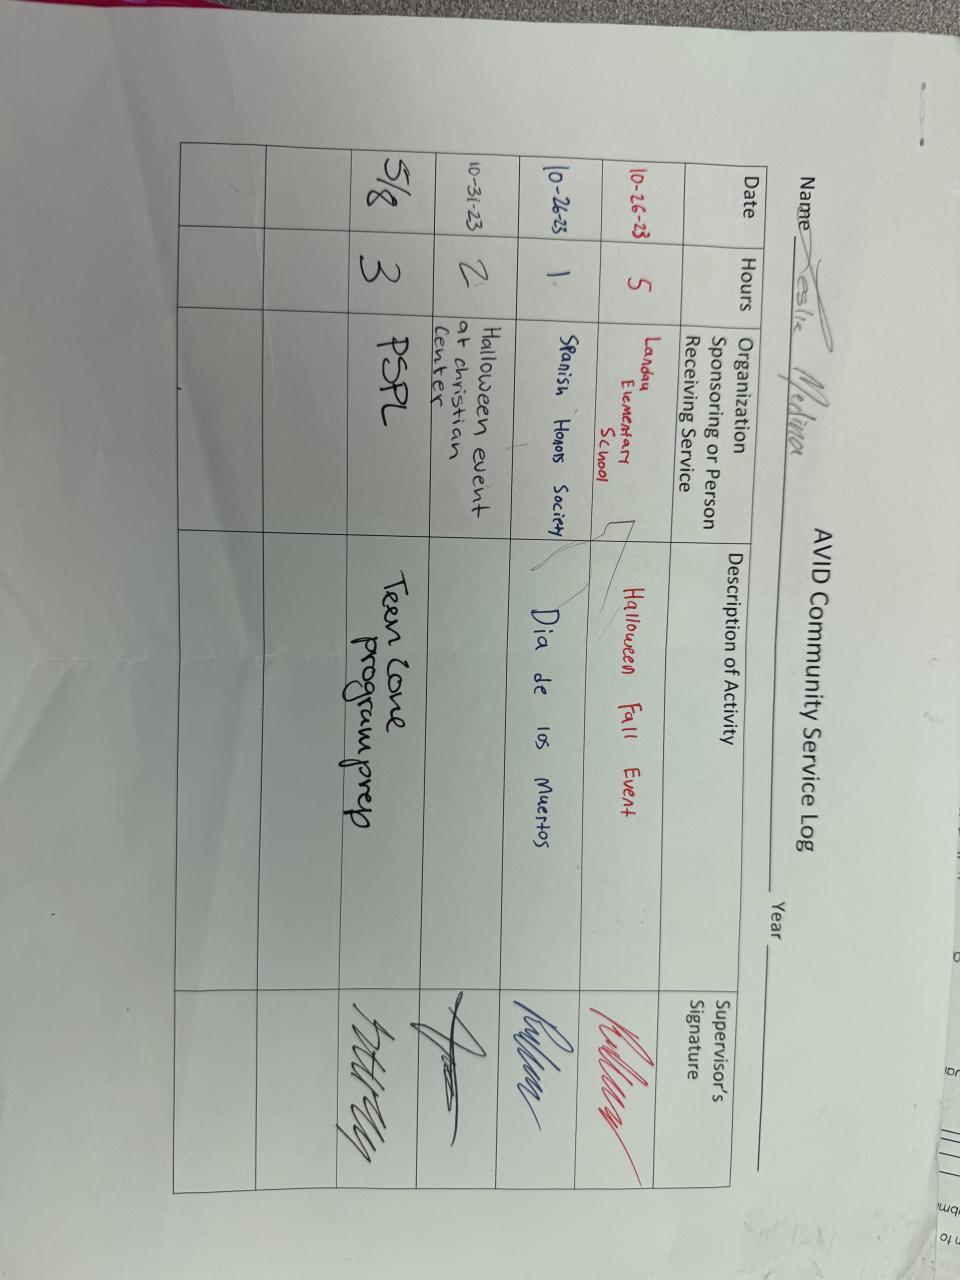 AVID Community Service Log
Name Leslie Medina Year
Date Hours Organization Sponsoring or Person Receiving Service Description of Activity Supervisor's Signature
10-26-23 5 Landau Elementary School Halloween Fall Event
10-26-23 1 Spanish Honors Society Dia de los Muertos
10-31-23 2 Halloween event at christian center
5/8 3 PSPL Teen Zone program prep